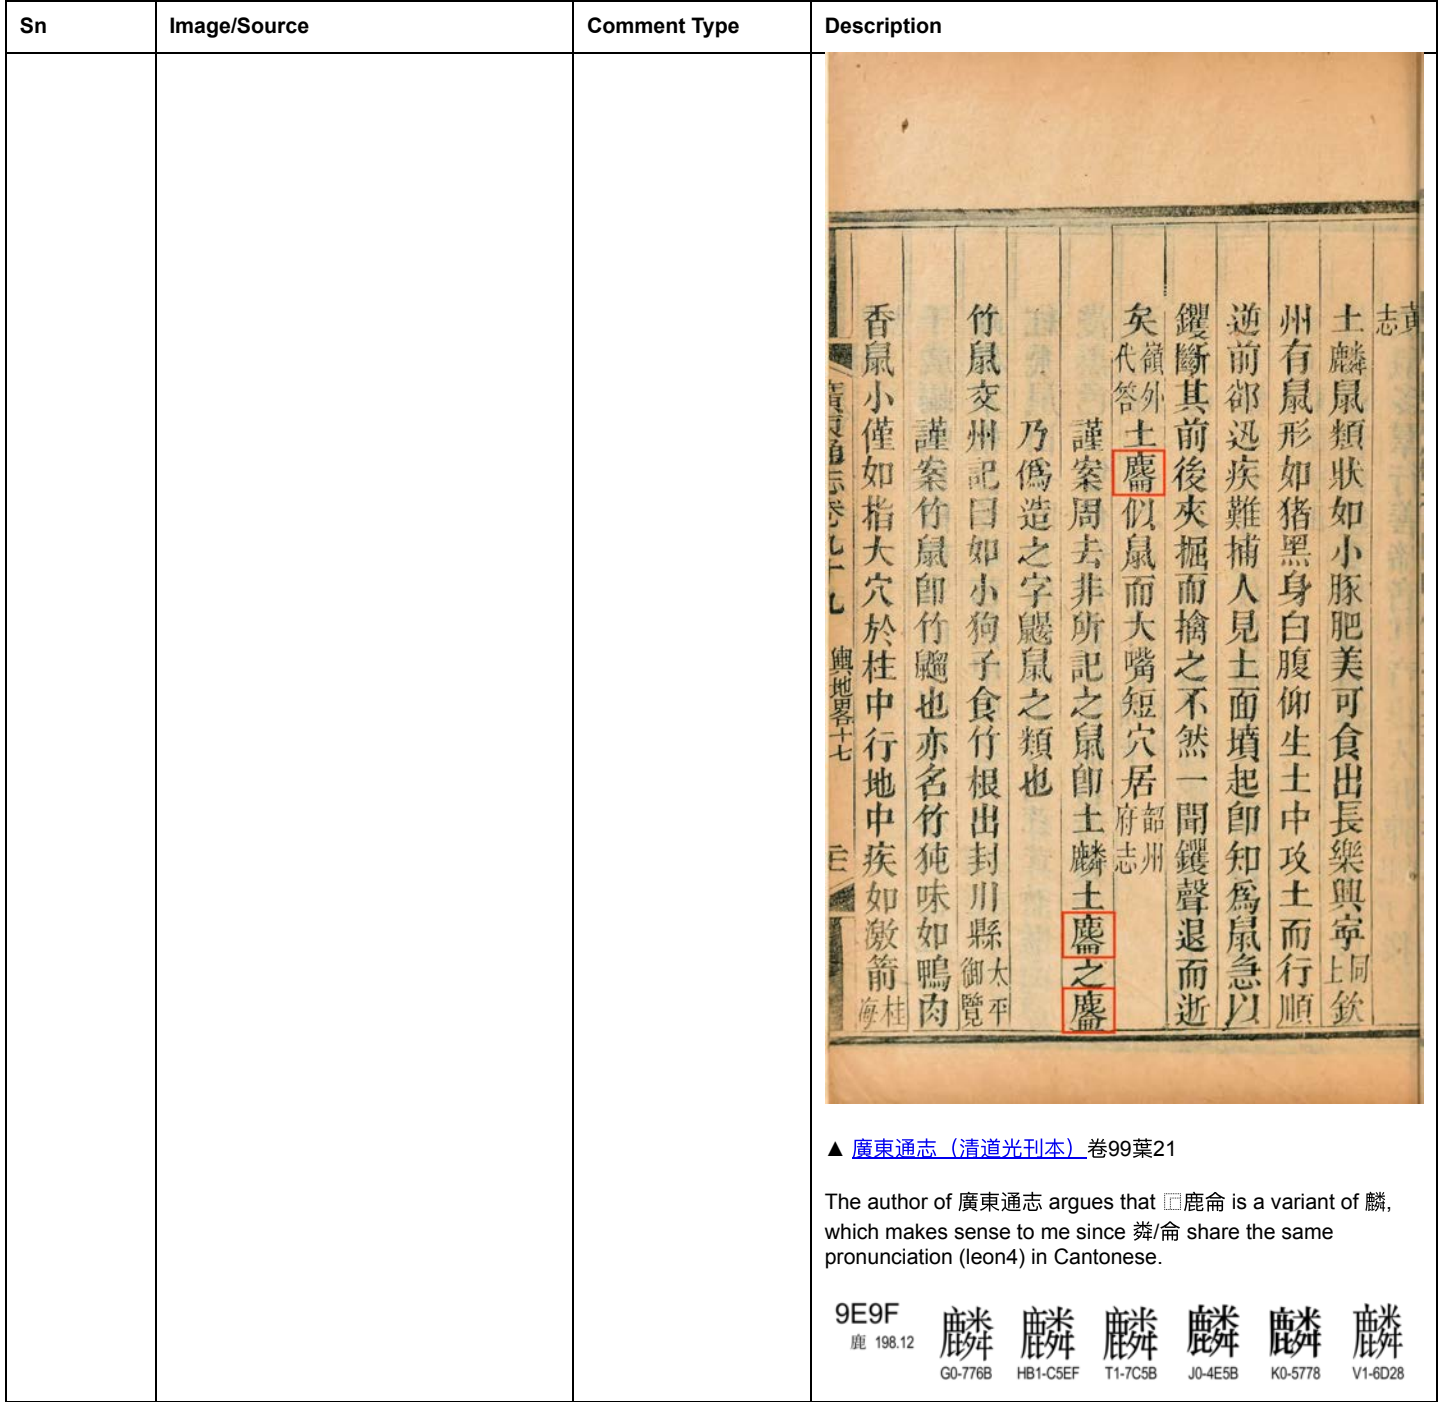 Sn Image/Source Comment Type Description
黃志
土麟鼠類狀如小豚肥美可食出長樂興寧同上欽
州有鼠形如猪黑身白腹仰生土中攻土而行順
逆前郤迅疾難捕人見土面墳起卽知爲鼠急以
钁斷其前後夾掘而擒之不然一聞钁聲退而逝
矣嶺外代答土⿸鹿侖似鼠而大嘴短穴居韶州府志
謹案周去非所記之鼠卽土麟土⿸鹿侖之⿸鹿侖
乃僞造之字鼴鼠之類也
竹鼠交州記曰如小狗子食竹根出封川縣太平御覽
謹案竹鼠卽竹䶉也亦名竹㹠味如鴨肉
香鼠小僅如指大穴於柱中行地中疾如激箭桂海
廣東通志卷九十九 輿地畧十七
▲ 廣東通志（清道光刊本）卷99葉21
The author of 廣東通志 argues that ⿸鹿侖 is a variant of 麟,
which makes sense to me since 粦/侖 share the same
pronunciation (leon4) in Cantonese.
9E9F 麟 麟 麟 麟 麟 麟
鹿 198.12 G0-776B HB1-C5EF T1-7C5B J0-4E5B K0-5778 V1-6D28